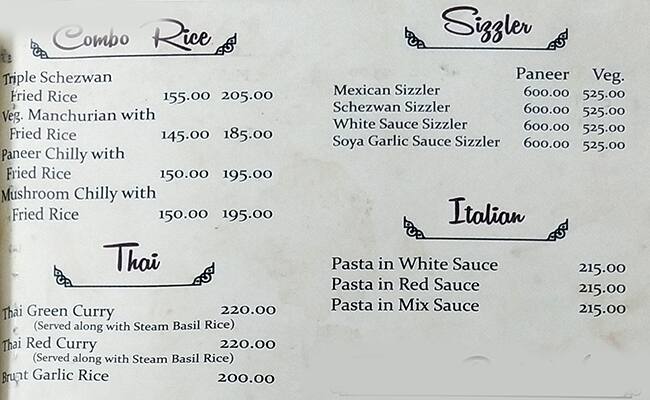 Combo Rice
Triple Schezwan
Fried Rice 155.00 205.00
Veg. Manchurian with
Fried Rice 145.00 185.00
Paneer Chilly with
Fried Rice 150.00 195.00
Mushroom Chilly with
Fried Rice 150.00 195.00
Thai
Thai Green Curry 220.00
(Served along with Steam Basil Rice)
Thai Red Curry 220.00
(Served along with Steam Basil Rice)
Brunt Garlic Rice 200.00
Sizzler
Paneer Veg.
Mexican Sizzler 600.00 525.00
Schezwan Sizzler 600.00 525.00
White Sauce Sizzler 600.00 525.00
Soya Garlic Sauce Sizzler 600.00 525.00
Italian
Pasta in White Sauce 215.00
Pasta in Red Sauce 215.00
Pasta in Mix Sauce 215.00